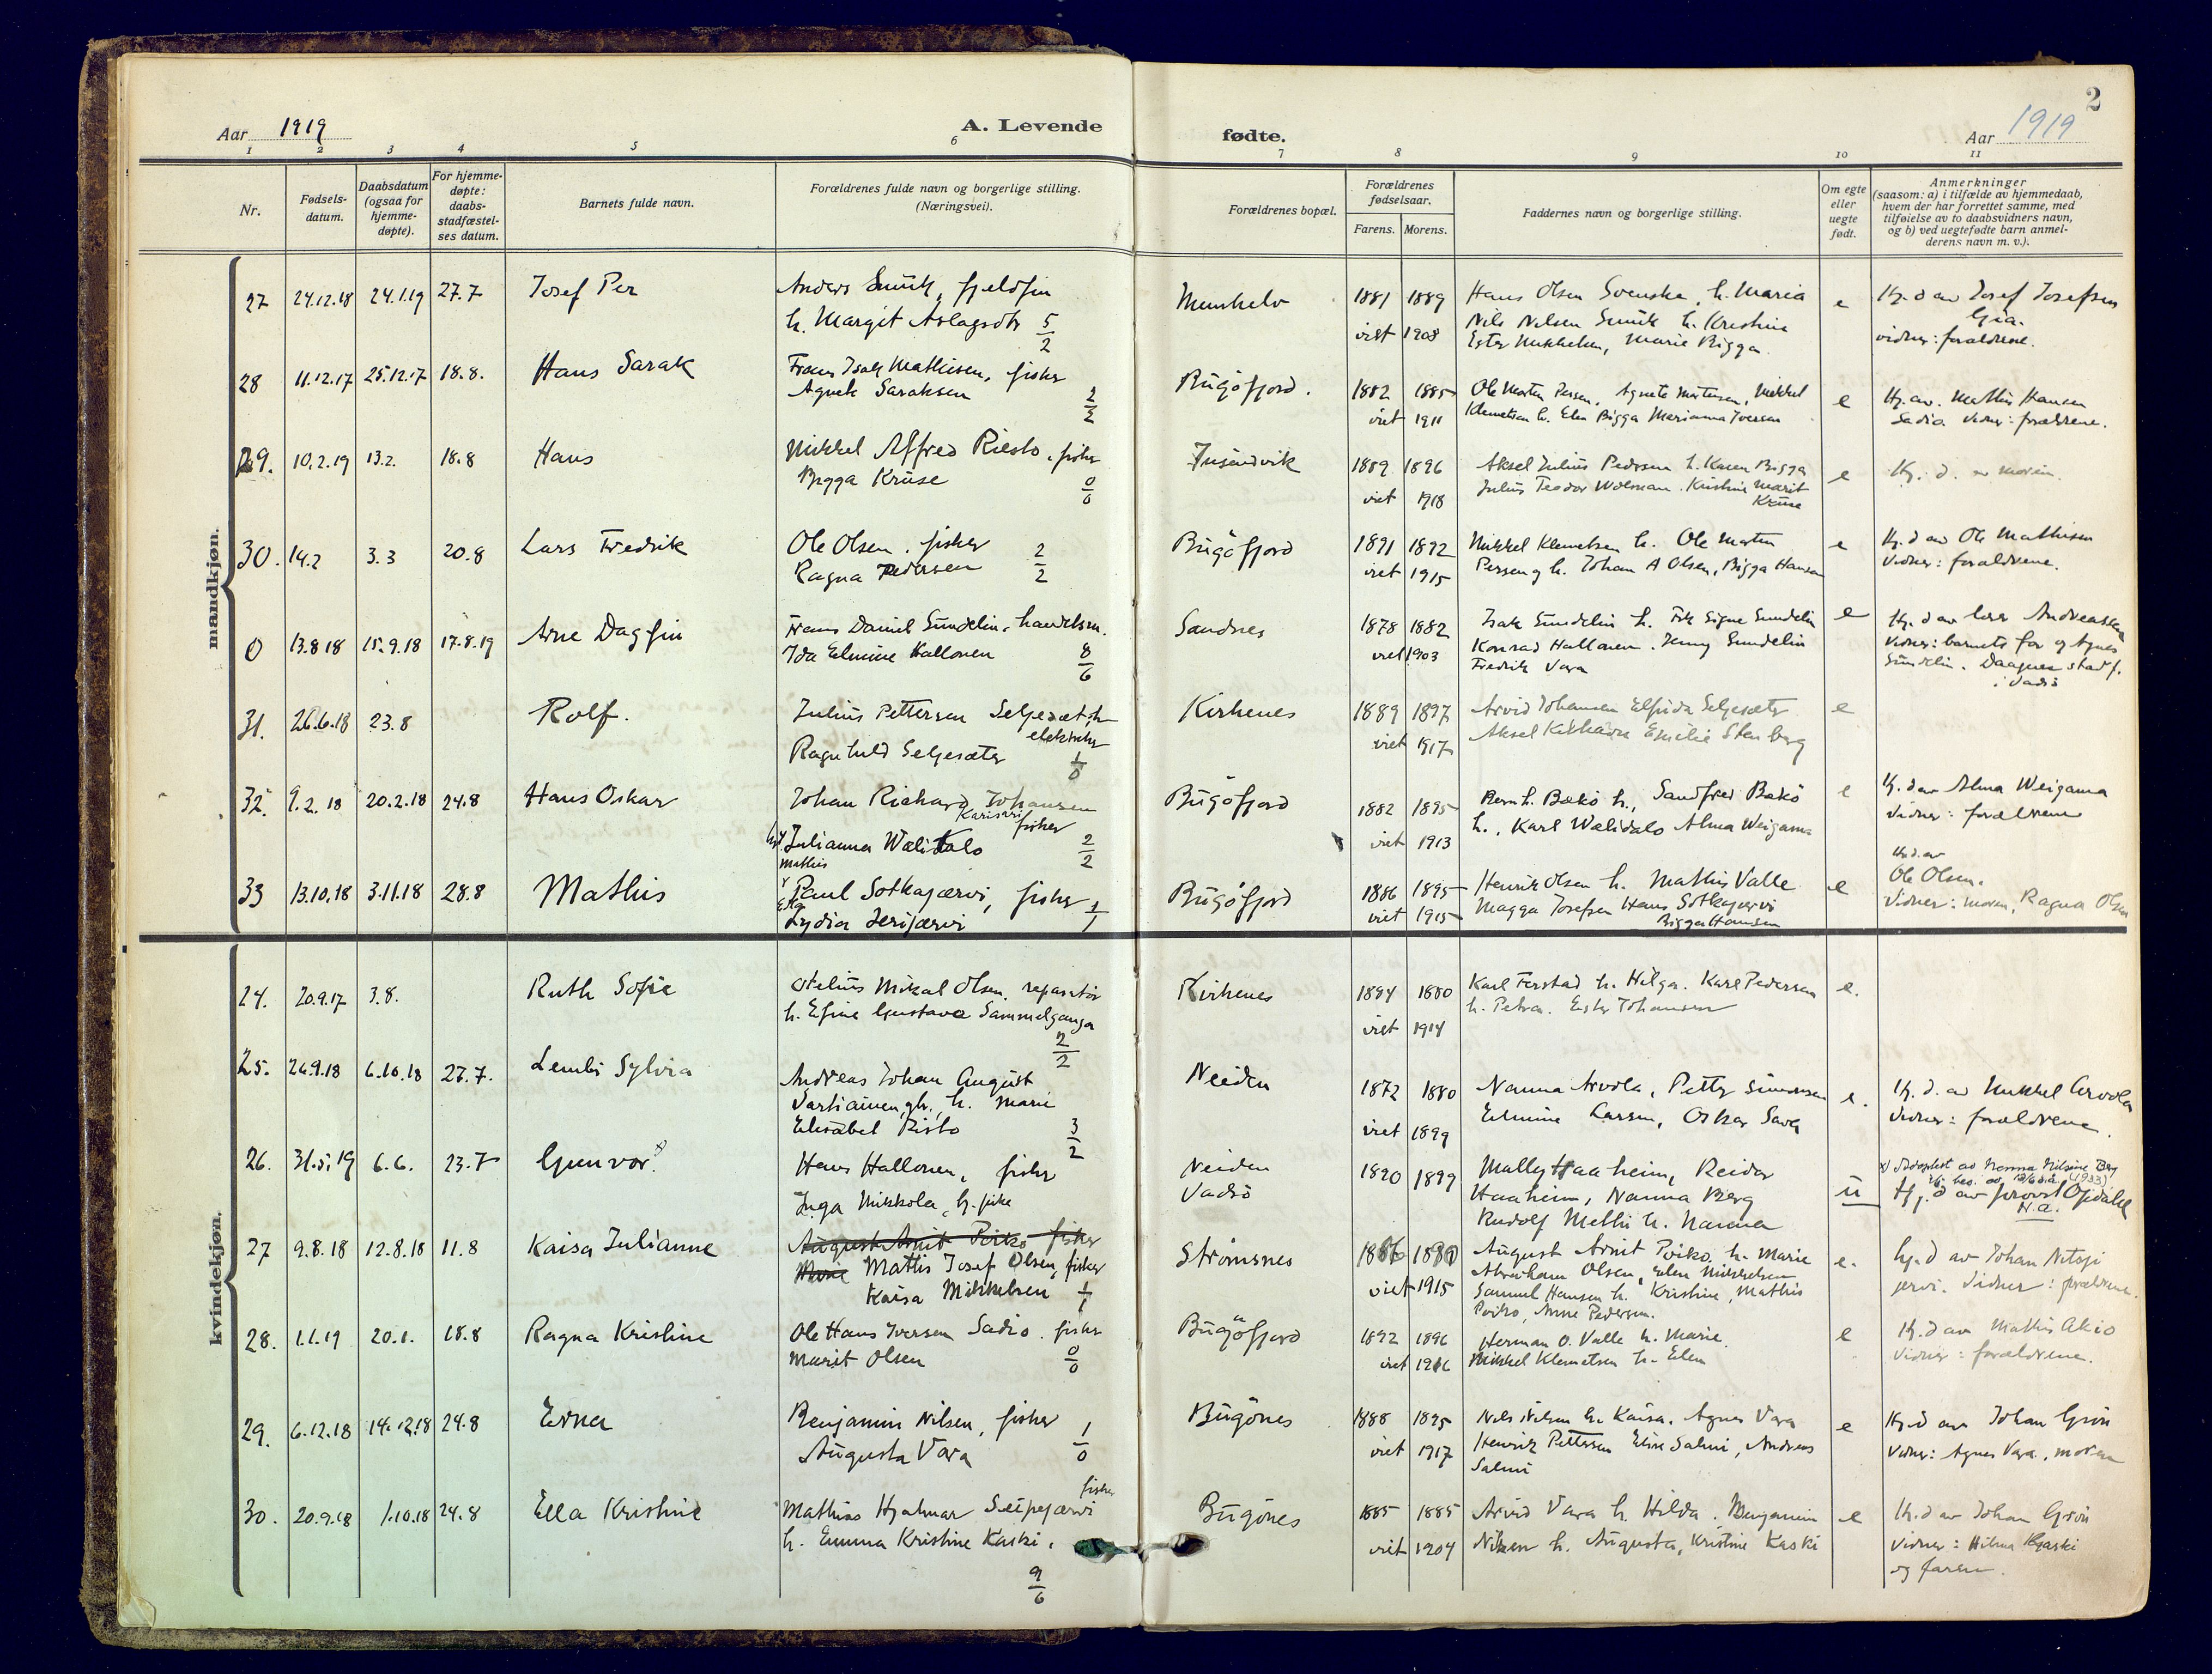 2
Aar 1919
A. Levende
fødte.
Aar 1919
1 2 3 4 5 6 7 8 9 10 11
Nr.
Fødsels-
datum.
Daabsdatum
(ogsaa for
hjemme-
døpte).
For hjemme-
døpte:
daabs-
stadfæstel-
ses datum.
Barnets fulde navn.
Forældrenes fulde navn og borgerlige stilling.
(Næringsvei).
Forældrenes bopæl.
Forældrenes
fødselsaar.
Farens. Morens.
Faddernes navn og borgerlige stilling.
Om egte
eller
uegte
født.
Anmerkninger
(saasom: a) i tilfælde av hjemmedaab,
hvem der har forrettet samme, med
tilføielse av to daabsvidners navn,
og b) ved uegtefødte barn anmel-
derens navn m. v.).
mandkjøn.
27 24.12.18 24.1.19 27.7 Josef Per Anders fjeldfin 1881 1889 Hans Olsen h. Maria e Hj. d av Josef Josefsen
h. Margit Aslagsdtr 5/2 viet 1908 Nils Nilsen h. Kristine
Marie Bigga vidner: forældrene.
28 11.12.17 25.12.17 18.8. Hans Sarak Frans Isak Mathisen, fisker Bugöfjord. 1882 1885 Ole Morten Persen, Agnete Mortensen, Mikkel e Hj. av. Mathis Hansen
Saraksen 2/2 viet 1911 Klemetsen h. Elen Bigga Marianna Iversen Sadio vidner: forældrene.
29. 10.2.19 13.2. 18.8 Hans Mikkel Alfred Riesto, fisker 1889 1896 Aksel Julius Pedersen h. Karen Bigga e Hj. d. av moren.
Bigga Kruse 0/0 viet 1918 Julius Teodor Kristine Marit
Kruse
30. 14.2 3.3 20.8 Lars Fredrik Ole Olsen, fisker 2/2 Bugöfjord 1891 1892 Mikkel Klemetsen h. Ole Morten e Hj. d av Ole Mathisen
Ragna Pedersen viet 1915 Persen og h. Johan A Olsen, Bigga Hansen Vidner: forældrene.
0 13.8 18 15.9.18 17.8.19 Arne Dagfin Frans Daniel Sundelin, handelsm. Sandnes 1878 1882 Isak Sundelin h. Frk Signe Sundelin e Hj. d av
Ida Elmine Hallonen 8/6 viet 1903 Konrad Hallonen. Jenny Sundelin Vidner: barnets far og Agnes
Fredrik Vara Sundelin. stadf.
i Vadsö
31. 26.6.18 23.8 Rolf. Julius Pettersen Seljesæter Kirkenes 1889 1897 Arvid Johansen Seljesæter e
Ragnhild Seljesæter 1/0 viet 1917 Aksel Emilie Stenberg
32. 9.2.18 20.2.18 24.8 Hans Oskar Johan Richard Johansen Bugöfjord 1882 1895 Bernh. Bækö h., Sandfred Bækö e Hj. d av Alma Weigama
Karisari fisker
Julianna 2/2 viet 1913 h., Karl Alma Weigama Vidner: forældrene
Mathis
33 13.10.18 3.11.18 28.8 Mathis Paul Sotkajærvi, fisker 1/1 Bugöfjord 1886 1895 Henrik Olsen h. Mathis Valle e Hj. d. av
Ole Olsen.
Lydia viet 1915 Magga Josefsen Hans Sotkajærvi Vidner: moren, Ragna Olsen
Bigga Hansen
kvindekjøn.
24. 20.9.17 3.8. Ruth Sofie Mikal Olsen, reparatör Kirkenes 1894 1880 Karl h. Helga. Karl Pedersen e.
h. Efine Gustava 2/2 viet 1914 h. Petra. Ester Johansen
25. 26.9.18 6.10.18 27.7. Lembi Sylvia Andreas Johan August Neiden 1872 1880 Nanna Arvola, Petter Simonsen e. Hj. d. av Mikkel Arvola
h. Marie
Elisabet Risto 3/2 viet 1899 Elmine Larsen, Oskar Vidner: forældrene.
26. 31.5.19 6.6. 23.7 Gunvor. Hans Hallonen, fisker Neiden 1890 1899 Mally Haaheim, Reidar u x) Adoptert av
Inga Mikkola, Vadsö Haaheim, Nanna Berg Hj. d av provst Opdahl
Rudolf h. Nanna N.a.
27 9.8.18 12.8.18 11.8 Kaisa Julianne August Arnt Poiko fisker Strömsnes 1886 August Arnt Poiko, h. Marie e. hj. d av Johan
Marie Mathis Josef Olsen, fisker viet 1915 Abraham Olsen, Elen Mikkelsen Vidner: forældrene.
Kaisa Mikkelsen 1/1 Samuel Hansen h. Kristine, Mathis
Poiko, Anne Pedersen.
28. 1.1.19 20.1. 18.8 Ragna Kristine Ole Hans Iversen Sadio, fisker Bugöfjord 1892 1896 Herman O. Valle h. Marie. e Hj. d av Mathis Akio
Marit Olsen 0/0 viet 1916 Mikkel Klemetsen h. Elen Vidner: forældrene.
29. 6.12.18 14.12.18 24.8 Erna Benjamin Nilsen, fisker 1/0 Bugönes 1888 1895 Nils Nilsen h. Kaisa, Agnes Vara e Hj. d av Johan Grön
Augusta Vara viet 1917 Henrik Pettersen Elise Salmi, Andreas Vidner: Agnes Vara, moren
Salmi
30. 20.9.18 1.10.18 24.8 Ella Kristine fisker
Mathias Hjalmar Seipæjærvi Bugönes 1885 1885 Arvid Vara h. Hilda. Benjamin e Hj. d av Johan Grön
h. Emma Kristine Kaski. 9/6 viet 1904 Nilsen h. Augusta, Kristine Kaski Vidner: Hilma Kaski
og faren.